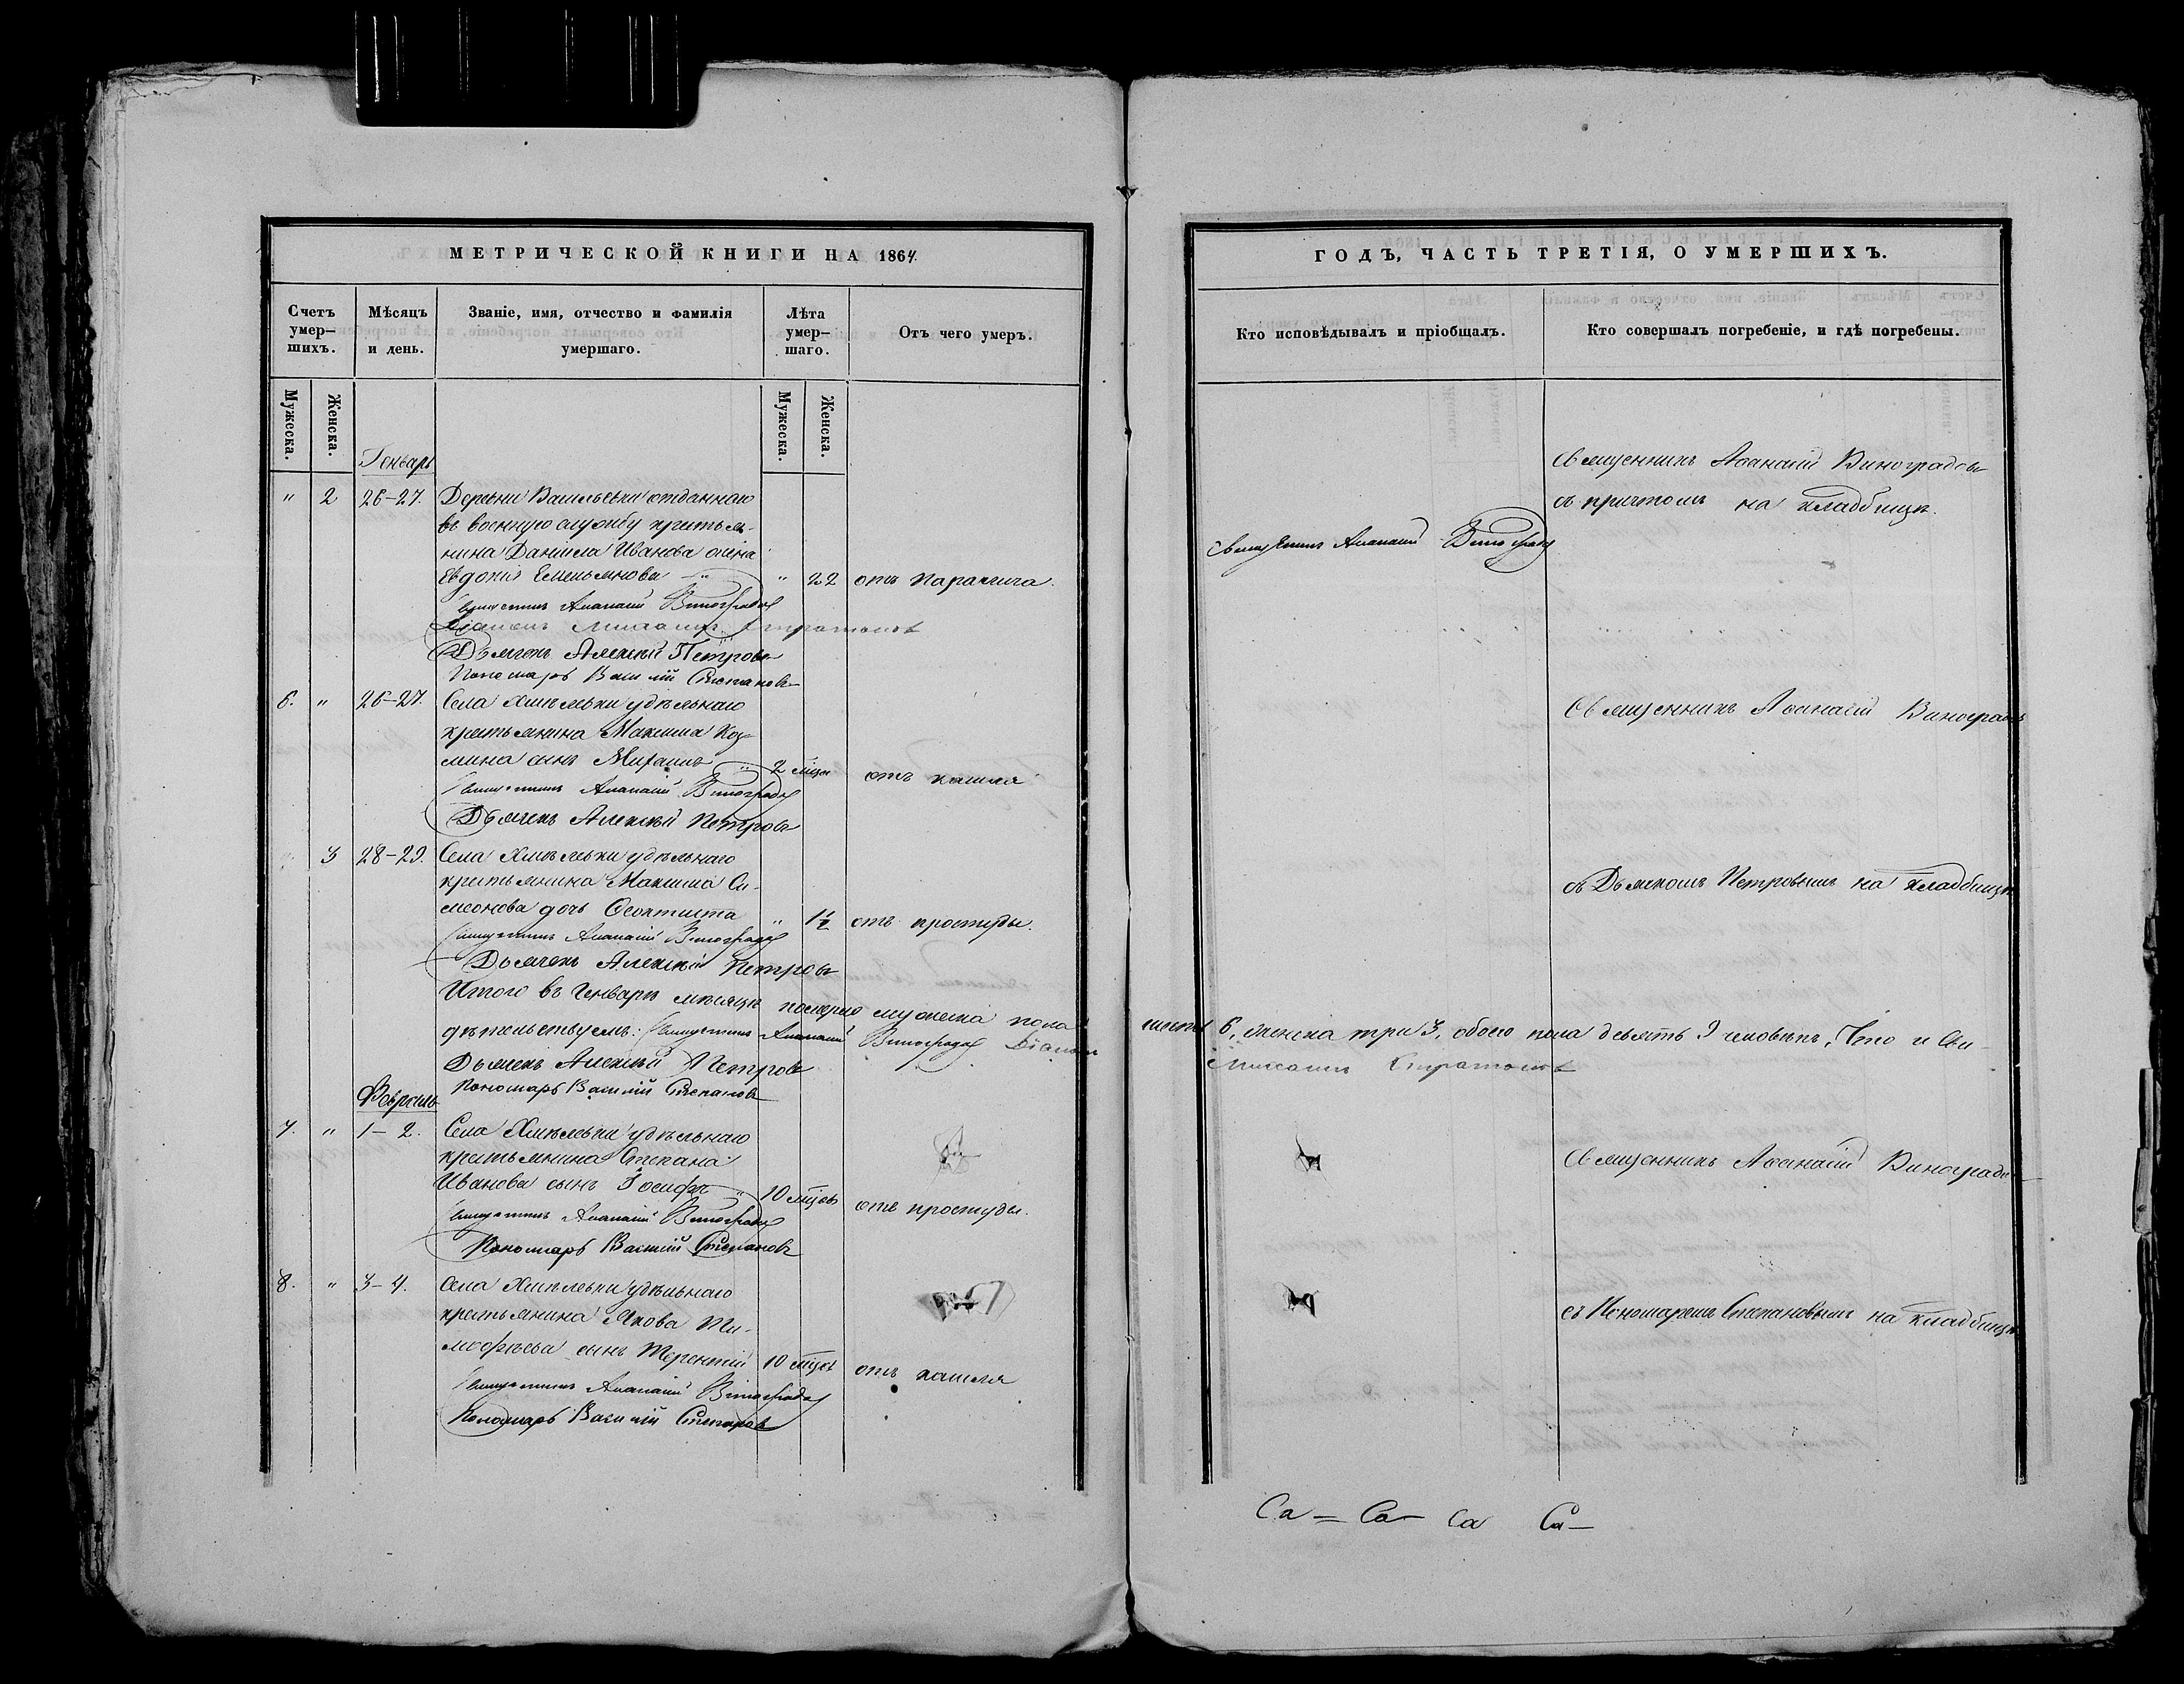 МЕТРИЧЕСКОЙ КНИГИ НА 1864
Счетъ умер-шихъ.
Мѣсяцъ и день.
Званіе, имя, отчество и фамилія умершаго.
Лѣта умер-шаго.
Отъ чего умеръ.
Мужеска.
Женска.
Мужеска.
Женска.
Генварь
" 2 26-27. Деревни Васильевки отданнаго
въ военную службу крестья-
нина Даніила Иванова жена
Евдокія Емельянова " 22 отъ паралича.
Священникъ Аѳанасій Виноградовъ
Діаконъ
Дьячекъ Алексѣй Петровъ
Пономарь Василій Степановъ
6. " 26-27. Села Хмѣлевки удѣльнаго
крестьянина Максима Коз-
мина сынъ Михаилъ 2 мѣся отъ кашля
Священникъ Аѳанасій Виноградовъ
Дьячекъ Алексѣй Петровъ
3 28-29. Села Хмѣлевки удѣльнаго
крестьянина Максима Си-
меонова дочь Ѳеоктиста " 1½ отъ простуды.
Священникъ Аѳанасій Виноградовъ
Дьячекъ Алексѣй Петровъ
Итого въ Генварѣ мѣсяцѣ померло мужеска пола
дѣтельствуемъ: Священникъ Аѳанасій Виноградовъ Діаконъ
Дьячекъ Алексѣй Петровъ
Пономарь Василій Степановъ
Февраль
7. " 1-2. Села Хмѣлевки удѣльнаго
крестьянина Степана
Иванова сынъ Іосифъ " 10 мѣцов отъ простуды.
Священникъ Аѳанасій Виноградовъ
Пономарь Василій Степановъ
8. " 3-4. Села Хмѣлевки удѣльнаго
крестьянина Якова Ти-
моѳѣева сынъ Терентій 10 мѣцов отъ кашля
Священникъ Аѳанасій Виноградовъ
Пономарь Василій Степановъ
ГОДЪ, ЧАСТЬ ТРЕТІЯ, О УМЕРШИХЪ.
Кто исповѣдывалъ и пріобщалъ.
Кто совершалъ погребеніе, и гдѣ погребены.
Священникъ Аѳанасій Виноградовъ
съ причтомъ на кладбищѣ.
Священникъ Аѳанасій Виноградовъ
Священникъ Аѳанасій Виноградовъ
съ Дьячкомъ Петровымъ на кладбищѣ
шесть 6, женска три 3, обоего пола девять 9 человѣкъ, Что и Сви-
Священникъ Аѳанасій Виноградовъ
съ Пономаремъ Степановымъ на кладбищѣ
Са = Са - Са Са -